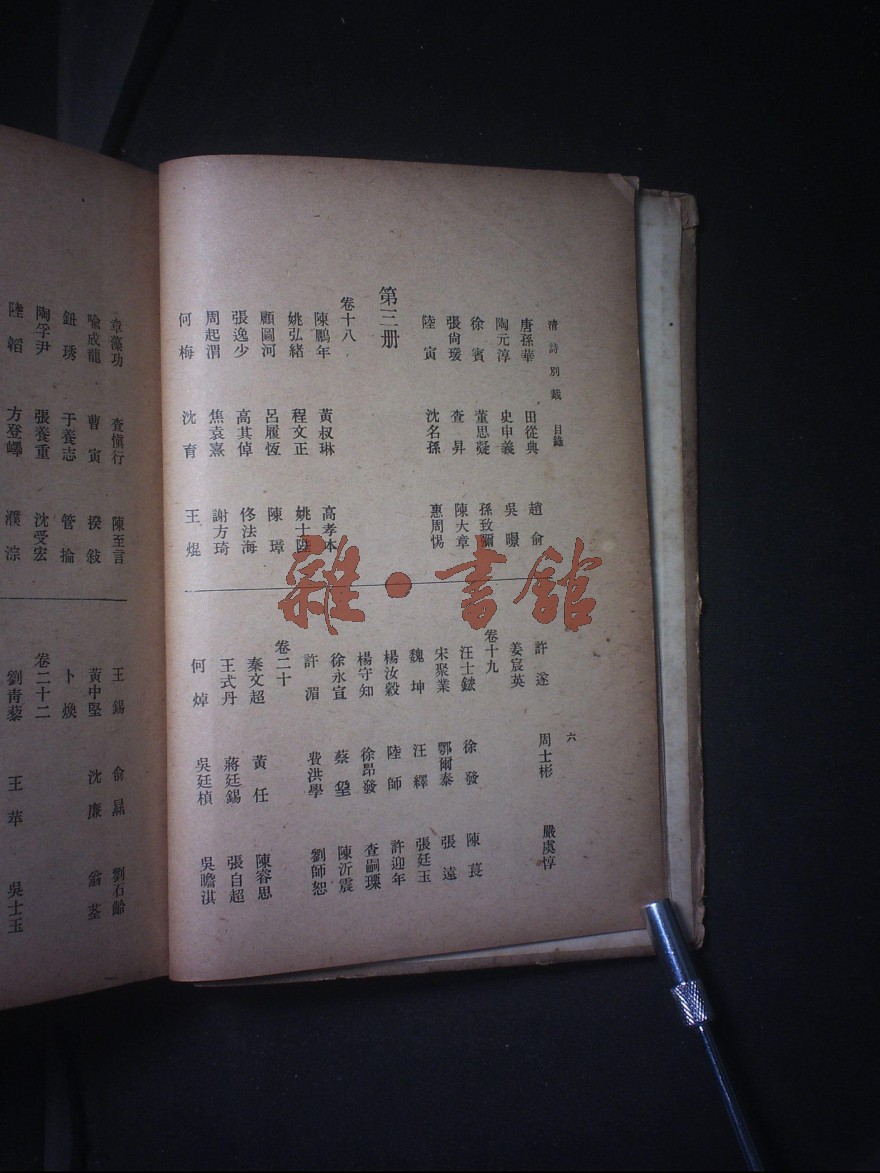 清詩別裁 目錄
六
唐孫華 田從典 趙俞
陶元淳 史申義 吳暻
徐賓 董思凝 孫致彌
張尙瑗 查昇 陳大章
陸寅 沈名孫 惠周惕
第三册
卷十八
陳鵬年 黃叔琳 高孝本
姚弘緒 程文正 姚士陸
顧圖河 呂履恆 陳璋
張逸少 高其倬 佟法海
周起渭 焦袁熹 謝方琦
何梅 沈育 王焜
許遂 周士彬 嚴虞惇
姜宸英
卷十九
汪士鋐 徐發 陳萇
宋聚業 鄂爾泰 張遠
魏坤 汪繹 張廷玉
楊汝穀 陸師 許迎年
楊守知 徐昂發 查嗣瑮
徐永宣 蔡 陳沂震
許湄 費洪學 劉師恕
卷二十
秦文超 黃任 陳睿思
王式丹 蔣廷錫 張自超
何焯 吳廷楨 吳瞻淇
章藻功 查愼行 陳至言
喻成龍 曹寅 揆敍
鈕琇 于養志 管掄
陶孚尹 張養重 沈受宏
陸韜 方登嶧 濮淙
王錫 俞鼂 劉石齡
黃中堅 沈廉 翁荃
卜煥
卷二十二
劉靑藜 王苹 吳士玉
雜·書館